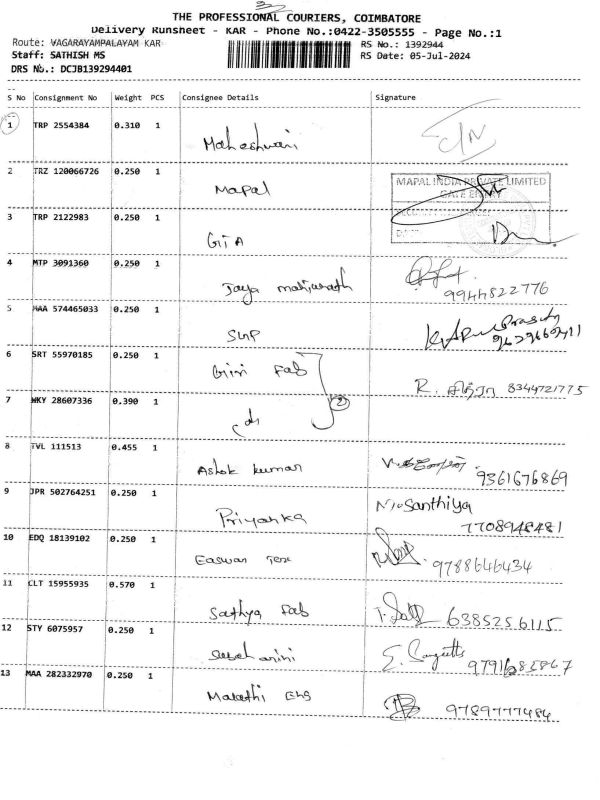 THE PROFESSIONAL COURIERS, COIMBATORE
Delivery Runsheet - KAR - Phone No.:0422-3505555 - Page No.:1
Route: VAGARAYAMPALAYAM KAR
RS No.: 1392944
Staff: SATHISH MS
RS Date: 05-Jul-2024
DRS No.: DCJB139294401
S No Consignment No Weight PCS Consignee Details Signature
1 TRP 2554384 0.310 1 Maheshwari
2 TRZ 120066726 0.250 1 Mapal
MAPAL INDIA PRIVATE LIMITED
GATE ENTRY
3 TRP 2122983 0.250 1
4 MTP 3091360 0.250 1 Jaya 9944822776
5 MAA 574465033 0.250 1 SNP
6 SRT 55970185 0.250 1 Giri Fab R. சித்ரா 8344721775
7 WKY 28607336 0.390 1 do 2
8 TVL 111513 0.455 1 Ashok kumar 9361676869
9 JPR 502764251 0.250 1 Priyanka Santhiya
7708948481
10 EDQ 18139102 0.250 1 Easwari 9788646434
11 CLT 15955935 0.570 1 Sathya Fab 6385256115
12 STY 6075957 0.250 1
13 MAA 282332970 0.250 1 Marathi 9789777484